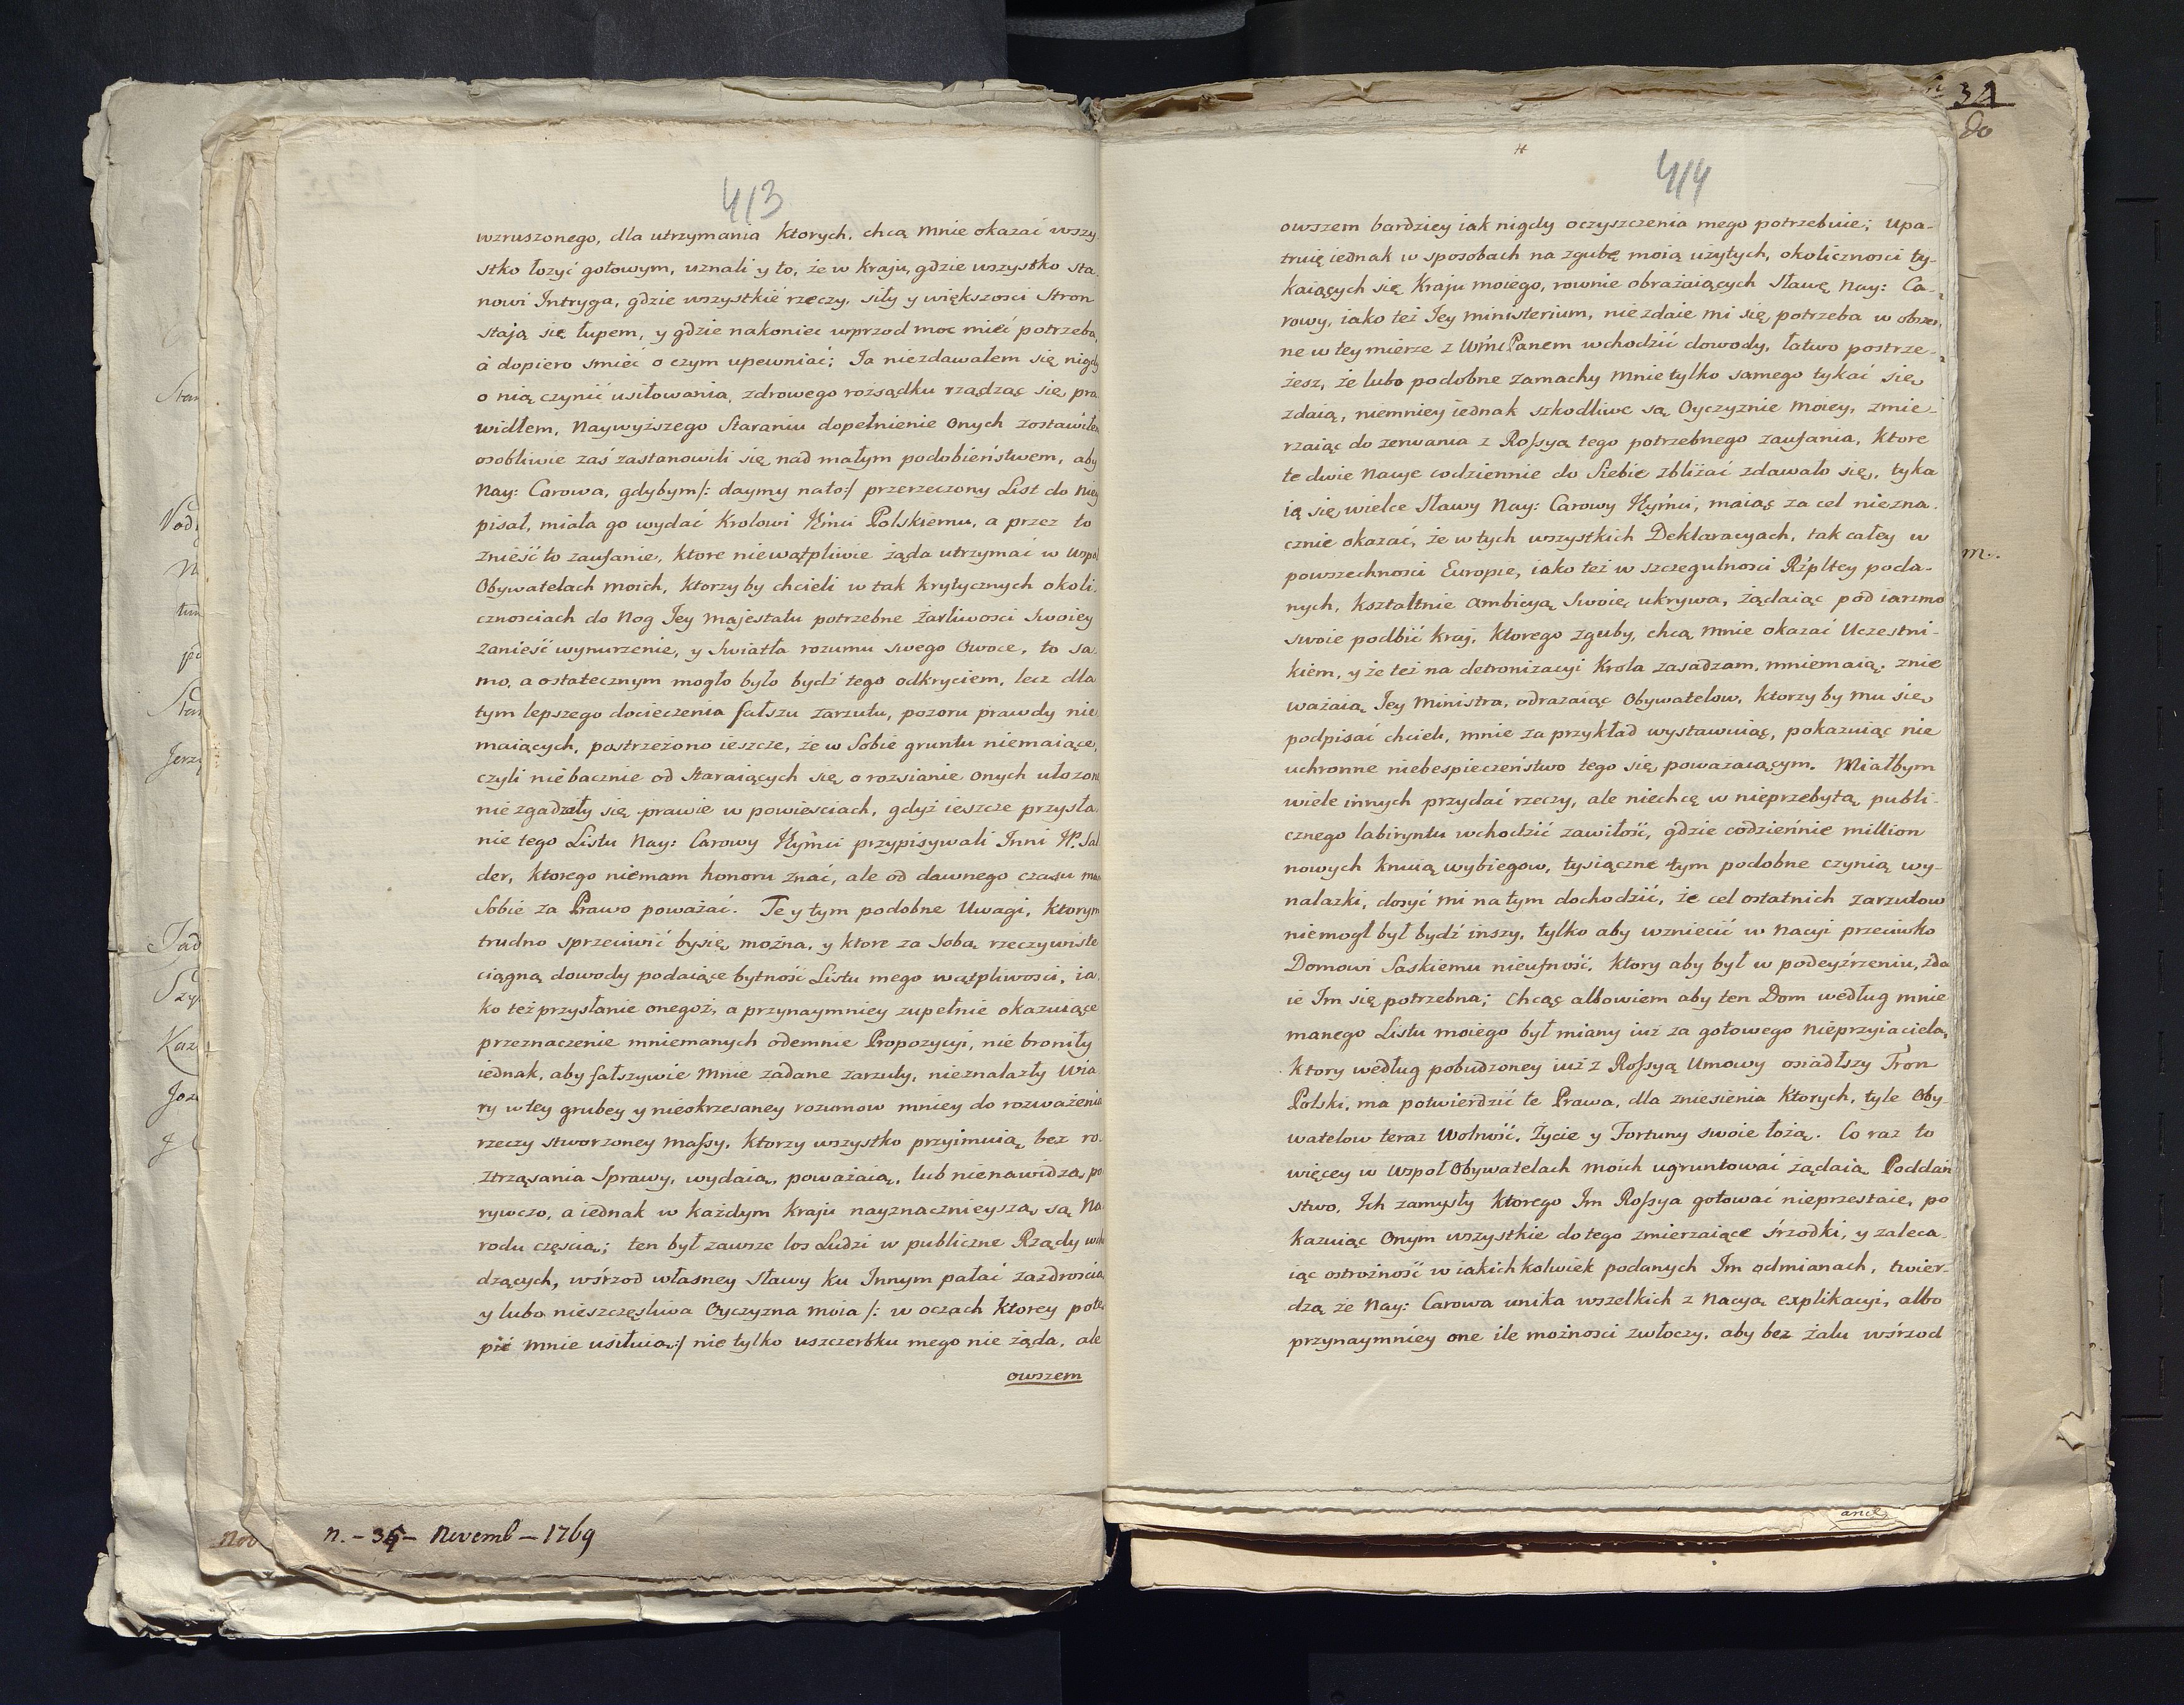 413
wzruszonego, dla utrzymania ktorych, chcą mnie okazać wszy
stko łożyć gotowym, uznali y to, że w kraju, gdzie wszystko sta,
nowi Intryga, gdzie wszystkie rzeczy, siły y większosci Stron
stają się łupem, y gdzie nakoniec wprzod moc mieć potrzeba,
à dopiero smieć o czym upewniać; Ja niezdawałem się nigdy
o nią czynić usiłowania, zdrowego rozsądku rządząc się pra
widłem, Naywyższego Staraniu dopełnienie onych zostawiłem
osobliwie zaś zastanowili się nad małym podobieństwem, aby
Nay: Carowa, gdybym /: daymy nato :/ przerzeczony List do Niey
pisał, miała go wydać Krolowi Jm̃ci Polskiemu, a przez to
znieść to zaufanie, ktore niewątpliwie żąda utrzymać w Wspol
Obywatelach moich, ktorzy by chcieli w tak krytycznych okoli,
cznosciach do Nog Jey Majestatu potrzebne żarliwosci Swoiey
zanieść wynurzenie, y Swiatła rozumu swego Owoce, to sa,
mo, a ostatecznym mogło było bydź tego odkryciem, lecz dla
tym lepszego docieczenia fałszu zarzutu, pozoru prawdy nie
maiących, postrzeżono ieszcze, że w Sobie gruntu niemaiące,
czyli niebacznie od Staraiących się o rozsianie onych ułozone
nie zgadzały się prawie w powiesciach, gdyż ieszcze przysła,
nie tego Listu Nay: Carowy Jeym̃ci przypisywali Inni JP. Sal
der, ktorego niemam honoru znać, ale od dawnego czasu mam
Sobie za Prawo poważać. Te y tym podobne Uwagi, ktorym
trudno sprzeciwić bysię można, y ktore za Sobą rzeczywiste
ciągną dowody podaiące bytność Listu mego wątpliwosci, ia,
ko też przysłanie onegoż, a przynaymniey zupełnie okazuiące
przeznaczenie mniemanych odemnie Propozycyi, nie broniły
iednak, aby fałszywie Mnie zadane zarzuty, nieznalazły Wia
ry w tey grubey y nieokrzesaney rozumow mniey do rozważenia
rzeczy stworzoney Massy, ktorzy wszystko przyimuią, bez ro,
ztrząsania Sprawy, wydaią, poważaią, lub nienawidzą po
rywczo, a iednak w każdym kraju nayznacznieyszą są Na,
rodu częscią; ten był zawsze los Ludzi w publiczne Rządy wcho
dzących, wśrzod własney Sławy ku Innym pałać zazdroscią,
y lubo nieszczęsliwa Oyczyzna moia /: w oczach ktorey potę,
pić mnie usiłuią :/ nie tylko uszczerbku mego nie żąda, ale
owszem
n. – 35 – Novemb – 1769
414
owszem bardziey iak nigdy oczyszczenia mego potrzebuie; upa-
truię iednak w sposobach na zgubę moią użytych, okolicznosci ty-
kaiących się Kraju moiego, rownie obrażaiących Sławę Nay: Ca-
rowy, iako też Jey ministerium, niezdaie mi się potrzeba w obszer,
ne w tey mierze z Wm̃c Panem wchodzić dowody, łatwo postrze-
żesz, że lubo podobne zamachy mnie tylko samego tykać się
zdaią, niemniey iednak szkodliwe są Oyczyznie moiey, zmie-
rzaiąc do zerwania z Rossyą tego potrzebnego zaufania, ktore
te dwie Nacye codziennie do Siebie zbliżać zdawało się, tyka
ią się wielce Sławy Nay: Carowy Jeym̃ci, maiąc za cel niezna,
cznie okazać, że w tych wszystkich Deklaracyach, tak całey w
powszechnosci Europie, iako też w szczegulnosci Rz̃pltey poda-
nych, kształtnie ambicyą Swoię ukrywa, żądaiąc pod iarzmo
swoie podbić kraj, ktorego zguby, chcą mnie okazać Uczestni-
kiem, y że też na detronizacyi Krola zasadzam, mniemaią, znie
ważaią Jey Ministra, odrażaiąc Obywatelow, ktorzy by mu się
podpisać chcieli, mnie za przykład wystawuiąc, pokazuiąc nie
uchronne niebespieczeństwo tego się poważaiącym. Miałbym
wiele innych przydać rzeczy, ale niechcę w nieprzebytą publi-
cznego labiryntu wchodzić zawiłość, gdzie codziennie million
nowych knuią wybiegow, tysiączne tym podobne czynią wy-
nalazki, dosyć mi na tym dochodzić, że cel ostatnich zarzutow
niemogł był bydź inszy, tylko aby wzniecić w Nacyi przeciwko
Domowi Saskiemu nieufność, ktory aby był w podeyźrzeniu, zda
ie Im się potrzebna; chcąc albowiem aby ten Dom według mnie
manego Listu moiego był miany iuż za gotowego Nieprzyiaciela,
ktory według pobudzoney iuż z Rossyą Umowy osiadłszy Tron
Polski, ma potwierdzić te Prawa, dla zniesienia ktorych, tyle Oby-
watelow teraz Wolność, Życie y Fortuny swoie łożą. Co raz to
więcey w Wspoł Obywatelach moich ugruntować żądaią Poddań
stwo, Ich zamysły ktorego Im Rossya gotować nieprzestaie, po
kazuiąc Onym wszystkie do tego zmierzaiące śrzodki, y zaleca-
iąc ostrożność w iakichkolwiek podanych Im odmianach, twier-
dzą że Nay: Carowa unika wszelkich z Nacyą explikacyi, albo
przynaymniey one ile możnosci zwłoczy, aby bez żalu wśrzod